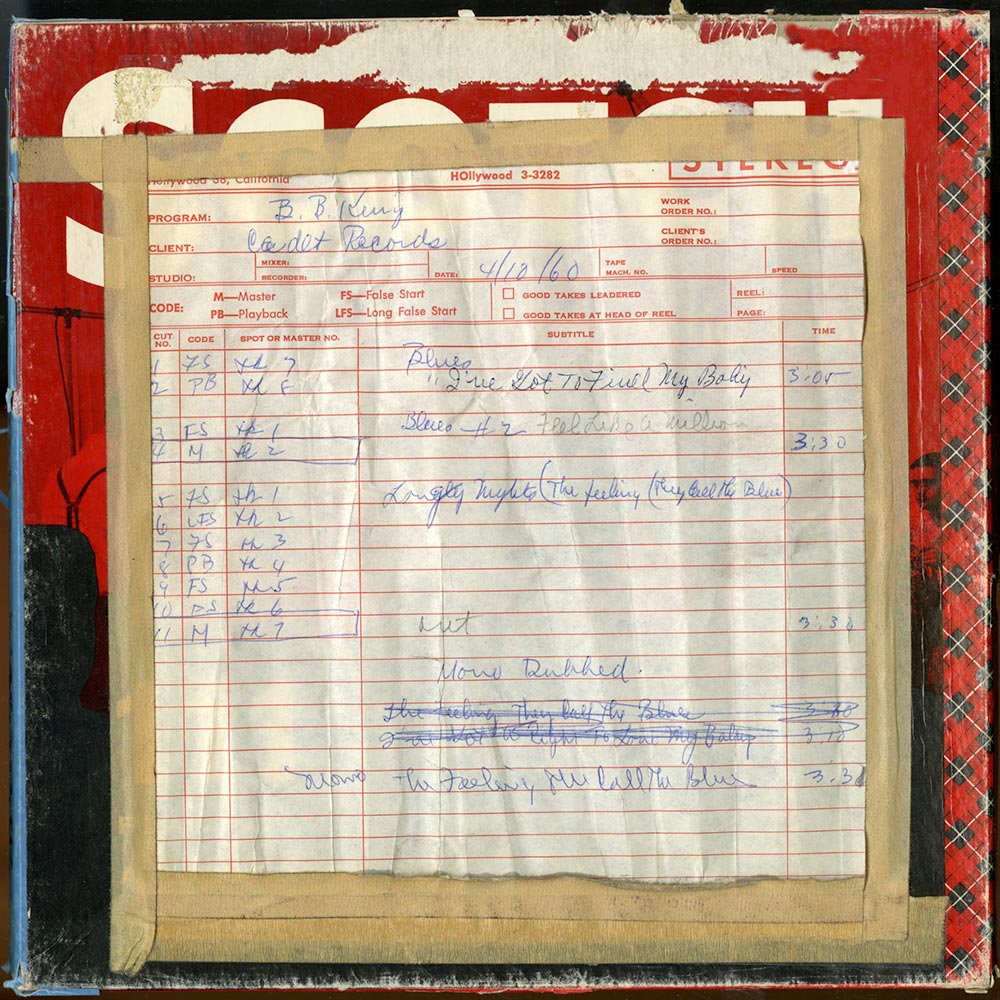 SCOTCH
STEREO
Hollywood 38, California HOllywood 3-3282
PROGRAM: B. B. King WORK ORDER NO.:
CLIENT: Cadet Records CLIENT'S ORDER NO.:
STUDIO: MIXER: RECORDER: DATE: 4/18/60 TAPE MACH. NO. SPEED
CODE: M—Master FS—False Start GOOD TAKES LEADERED REEL:
PB—Playback LFS—Long False Start GOOD TAKES AT HEAD OF REEL PAGE:
CUT NO. CODE SPOT OR MASTER NO. SUBTITLE TIME
1 FS TK 7 Blues
2 PB TK 8 " I've Got To Find My Baby 3:05
3 FS TK 1 Blues #2 Feel Like a Million
4 M TK 2 3:30
5 FS TK 1 Longly Nights (The feeling (They Call The Blues)
6 LFS TK 2
7 FS TK 3
8 PB TK 4
9 FS TK 5
10 FS TK 6
11 M TK 7 3:30
Mono Dubbed.
The Feeling They Call The Blues
To Love My Baby 3:10
Mono The Feeling The Call The Blue